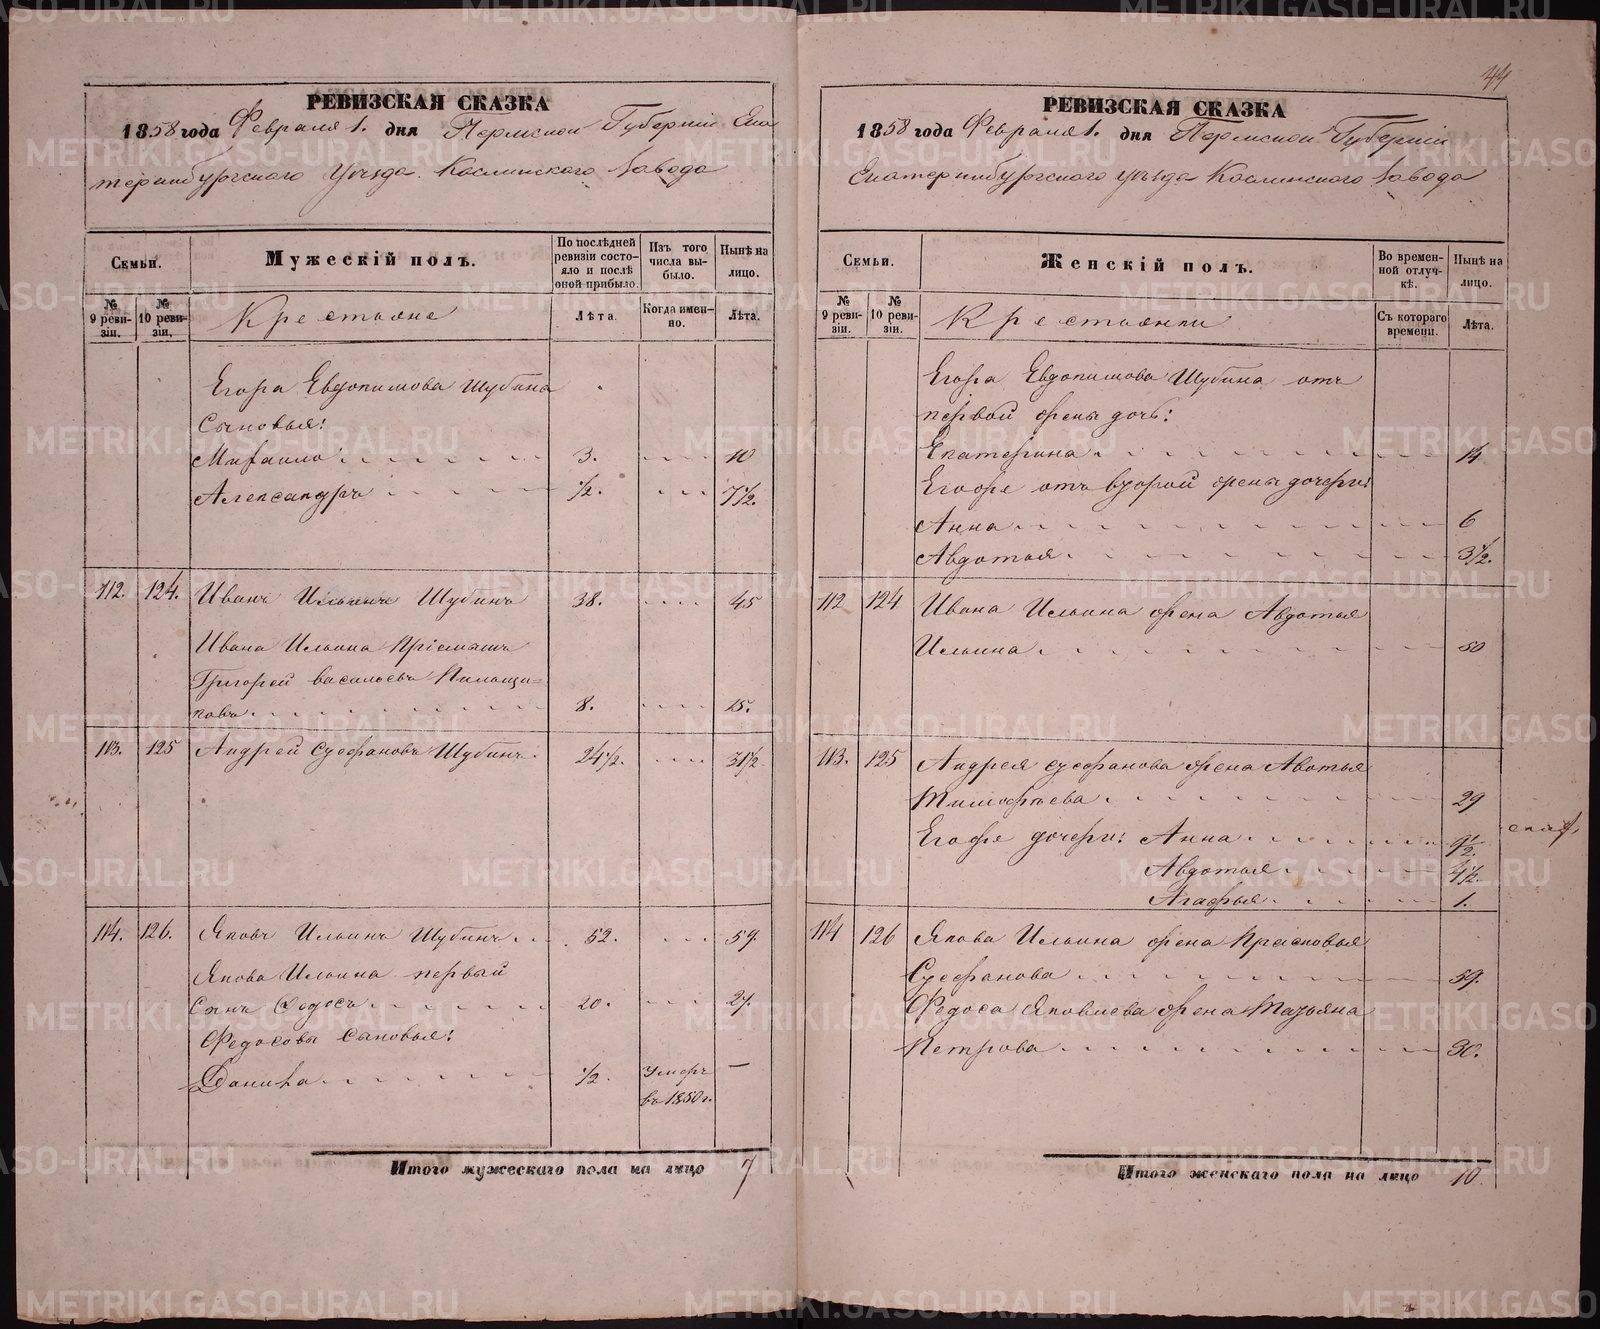 РЕВИЗСКАЯ СКАЗКА
1858 года Февраля 1. дня Пермской Губерніи Ека
теринбургскаго Уѣзда Каслинскаго Завода
Семьи.
Мужескій полъ.
По послѣдней ревизіи состояло и послѣ оной прибыло.
Изъ того числа выбыло.
Нынѣ на лицо.
№ 9 ревизіи.
№ 10 ревизіи.
Крестьяне
Лѣта.
Когда именно.
Лѣта.
Егора Евдокимова Шубина
Сыновья:
Михаило 3. 10
Александръ ½. 7½.
112. 124. Иванъ Ильинъ Шубинъ 38. 45
Ивана Ильина Пріемышъ
Григорей Васильевъ
8. 15.
113. 125 Андрей Стефановъ Шубинъ. 24½. 31½
114. 126. Яковъ Ильинъ Шубинъ 52. 59.
Якова Ильина первый
Сынъ Федосъ 20. 27.
Федосовы сыновья:
Данила ½. Умеръ —
въ 1850 г.
Итого мужескаго пола на лицо 7
44
РЕВИЗСКАЯ СКАЗКА
1858 года Февраля 1. дня Пермской Губерніи
Екатеринбургскаго уѣзда Каслинскаго Завода
Семьи.
Женскій полъ.
Во временной отлучкѣ.
Нынѣ на лицо.
№ 9 ревизіи.
№ 10 ревизіи.
Крестьянки
Съ котораго времени.
Лѣта.
Егора Евдокимова Шубина отъ
первой жены дочь:
Екатерина 14
Егоже отъ второй жены дочери:
Анна 6
Авдотья 3½.
112 124 Ивана Ильина жена Авдотья
Ильина 50
113. 125 Андрея Стефанова жена Авотья
Тимофѣева 29
Егоже дочери: Анна 9½
Авдотья 4½.
Агафья 1.
114 126 Якова Ильина жена Прасковья
Стефанова 59.
Федоса Яковлева жена Татьяна
Петрова 30.
Итого женскаго пола на лицо 10
METRIKI.GASO-URAL.RU